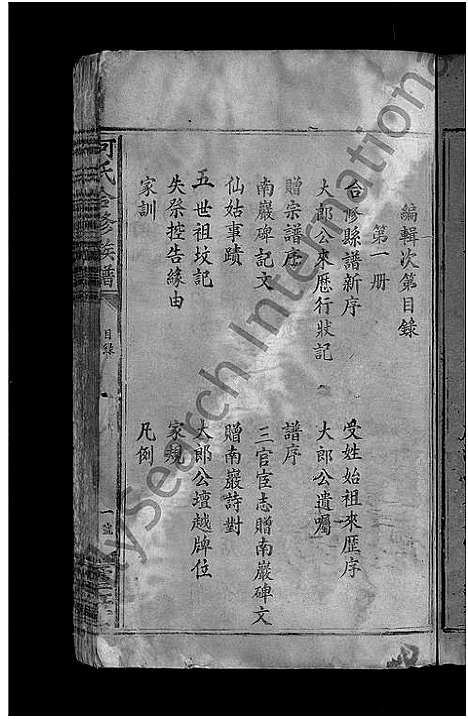 編輯次第目錄
第一册
合修縣譜新序
受姓始祖來歷序
大郎公來歷行狀記
大郎公遺囑
贈宗譜序
譜序
南巖碑記文
三官宦志贈南巖碑文
仙姑事蹟
贈南巖詩對
五世祖坟記
大郎公壇越牌位
失祭控告緣由
家規
家訓
凡例
何氏合修族譜
目錄
一
FamilySearch International